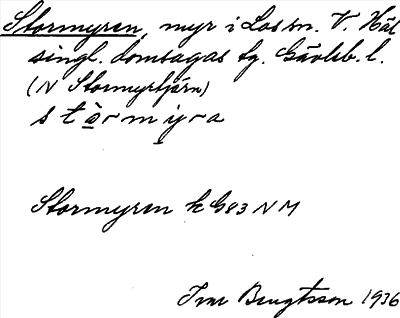 Stormyren, myr i Los sn. V. Häl
singl. domsagas tg. Gävleb. l.
(N Stormyrtjärn)
stòrmyra
Stormyren k G83 NM
Ivar Bengtsson 1936